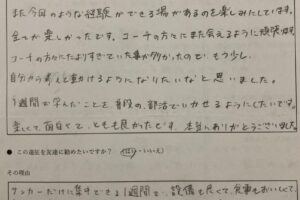 また今回のような経験ができる場があるのを楽しみにしています。
全てが楽しかったです。コーチの方々にまた会えるように頑張ります
コーチの方にたよりすぎていた事が多かったので、もう少し
自分から考えて動けるようになりたいなと思いました。
1週間で学んだことを普段の部活でいかせるようにしたいです。
楽しくて、面白くて、とても良かったです。本当にありがとうございました。
● この遠征を友達に勧めたいですか？ (はい)・いいえ)
その理由
サッカーだけに集中できる1週間で、設備も良くて、食事もおいしくて、